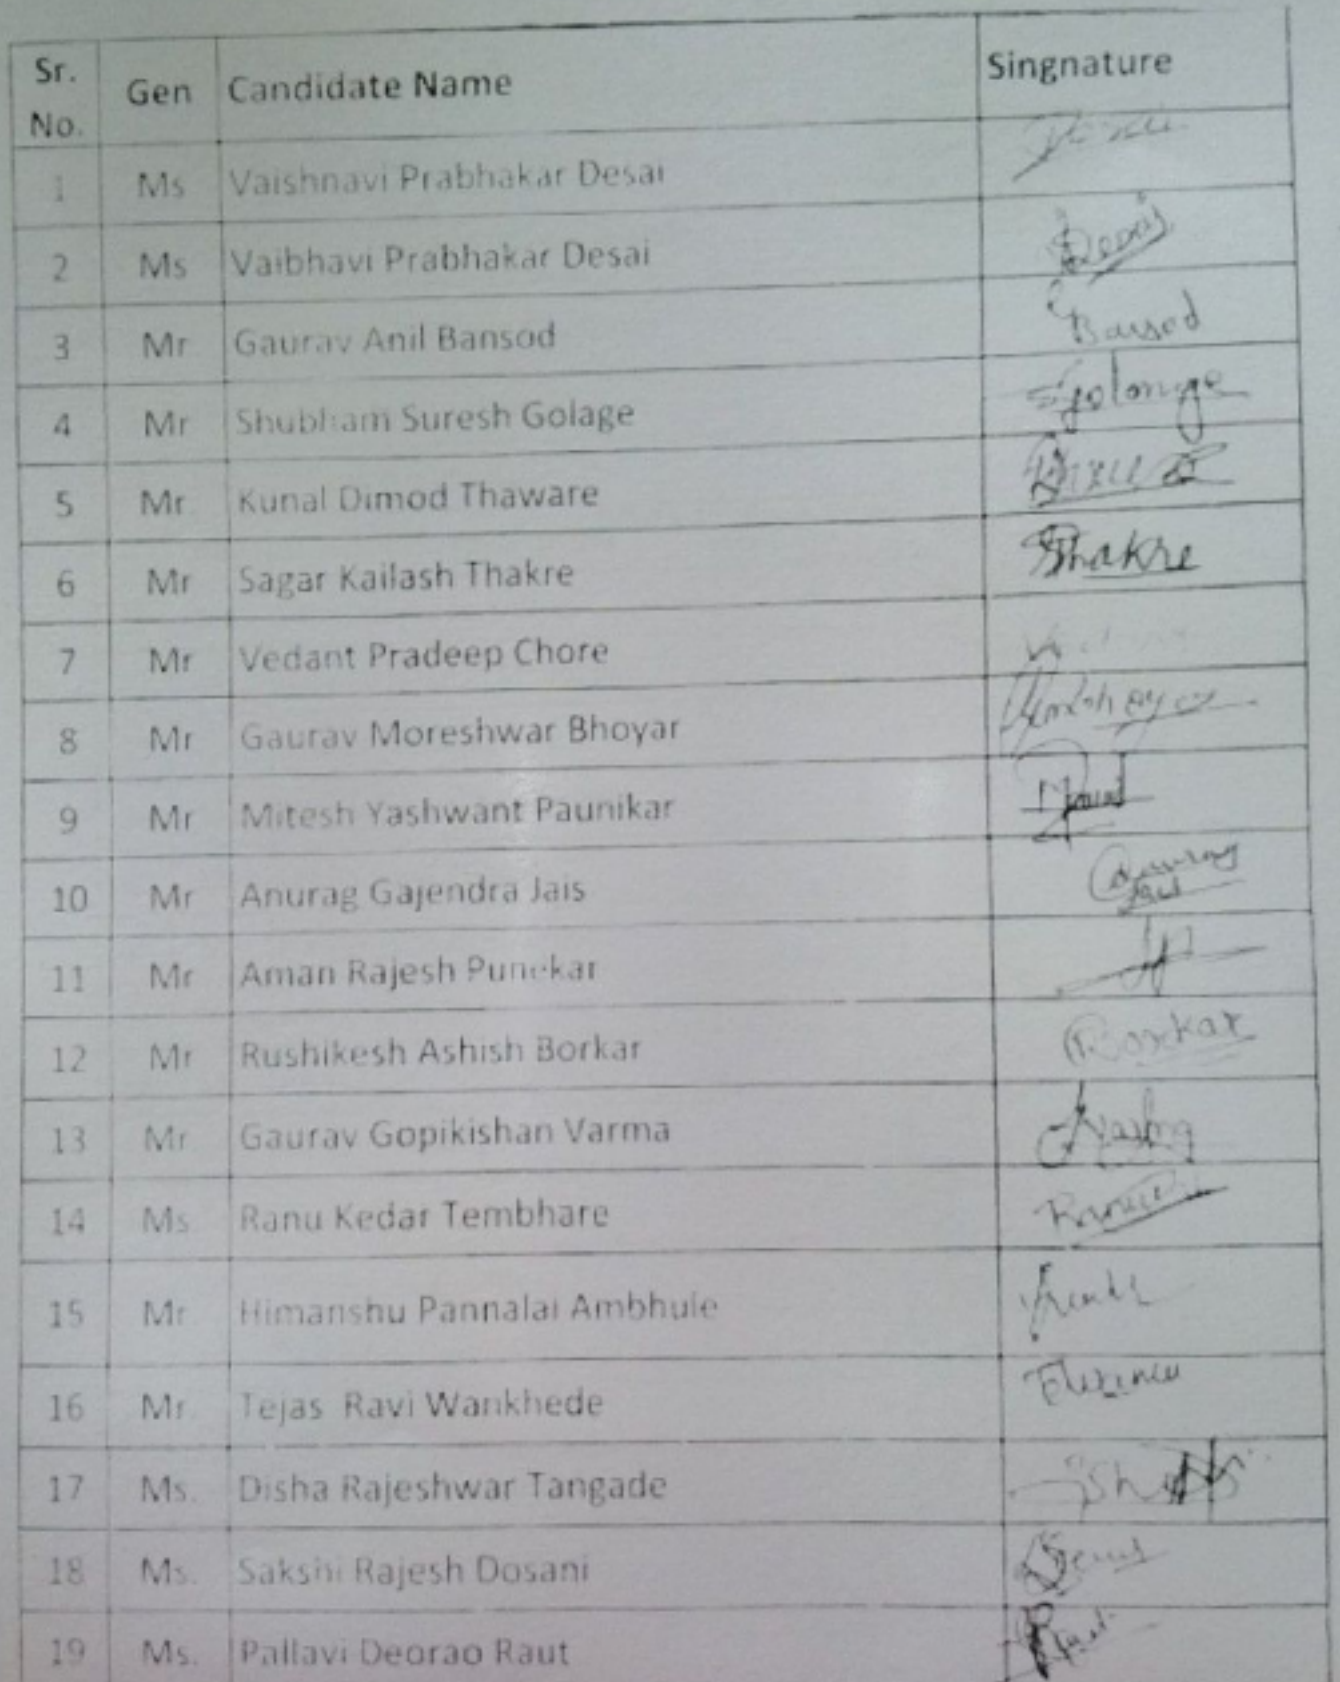 Sr. No. Gen Candidate Name Singnature
1 Ms Vaishnavi Prabhakar Desai
2 Ms Vaibhavi Prabhakar Desai Desai
3 Mr Gaurav Anil Bansod Bansod
4 Mr Shubham Suresh Golage
5 Mr. Kunal Dimod Thaware
6 Mr Sagar Kailash Thakre Thakre
7 Mr Vedant Pradeep Chore
8 Mr Gaurav Moreshwar Bhoyar
9 Mr Mitesh Yashwant Paunikar
10 Mr Anurag Gajendra Jais Anurag Jais
11 Mr Aman Rajesh Punekar
12 Mr Rushikesh Ashish Borkar Borkar
13 Mr Gaurav Gopikishan Varma
14 Ms. Ranu Kedar Tembhare
15 Mr Himanshu Pannalal Ambhule
16 Mr. Tejas Ravi Wankhede
17 Ms. Disha Rajeshwar Tangade
18 Ms. Sakshi Rajesh Dosani
19 Ms. Pallavi Deorao Raut